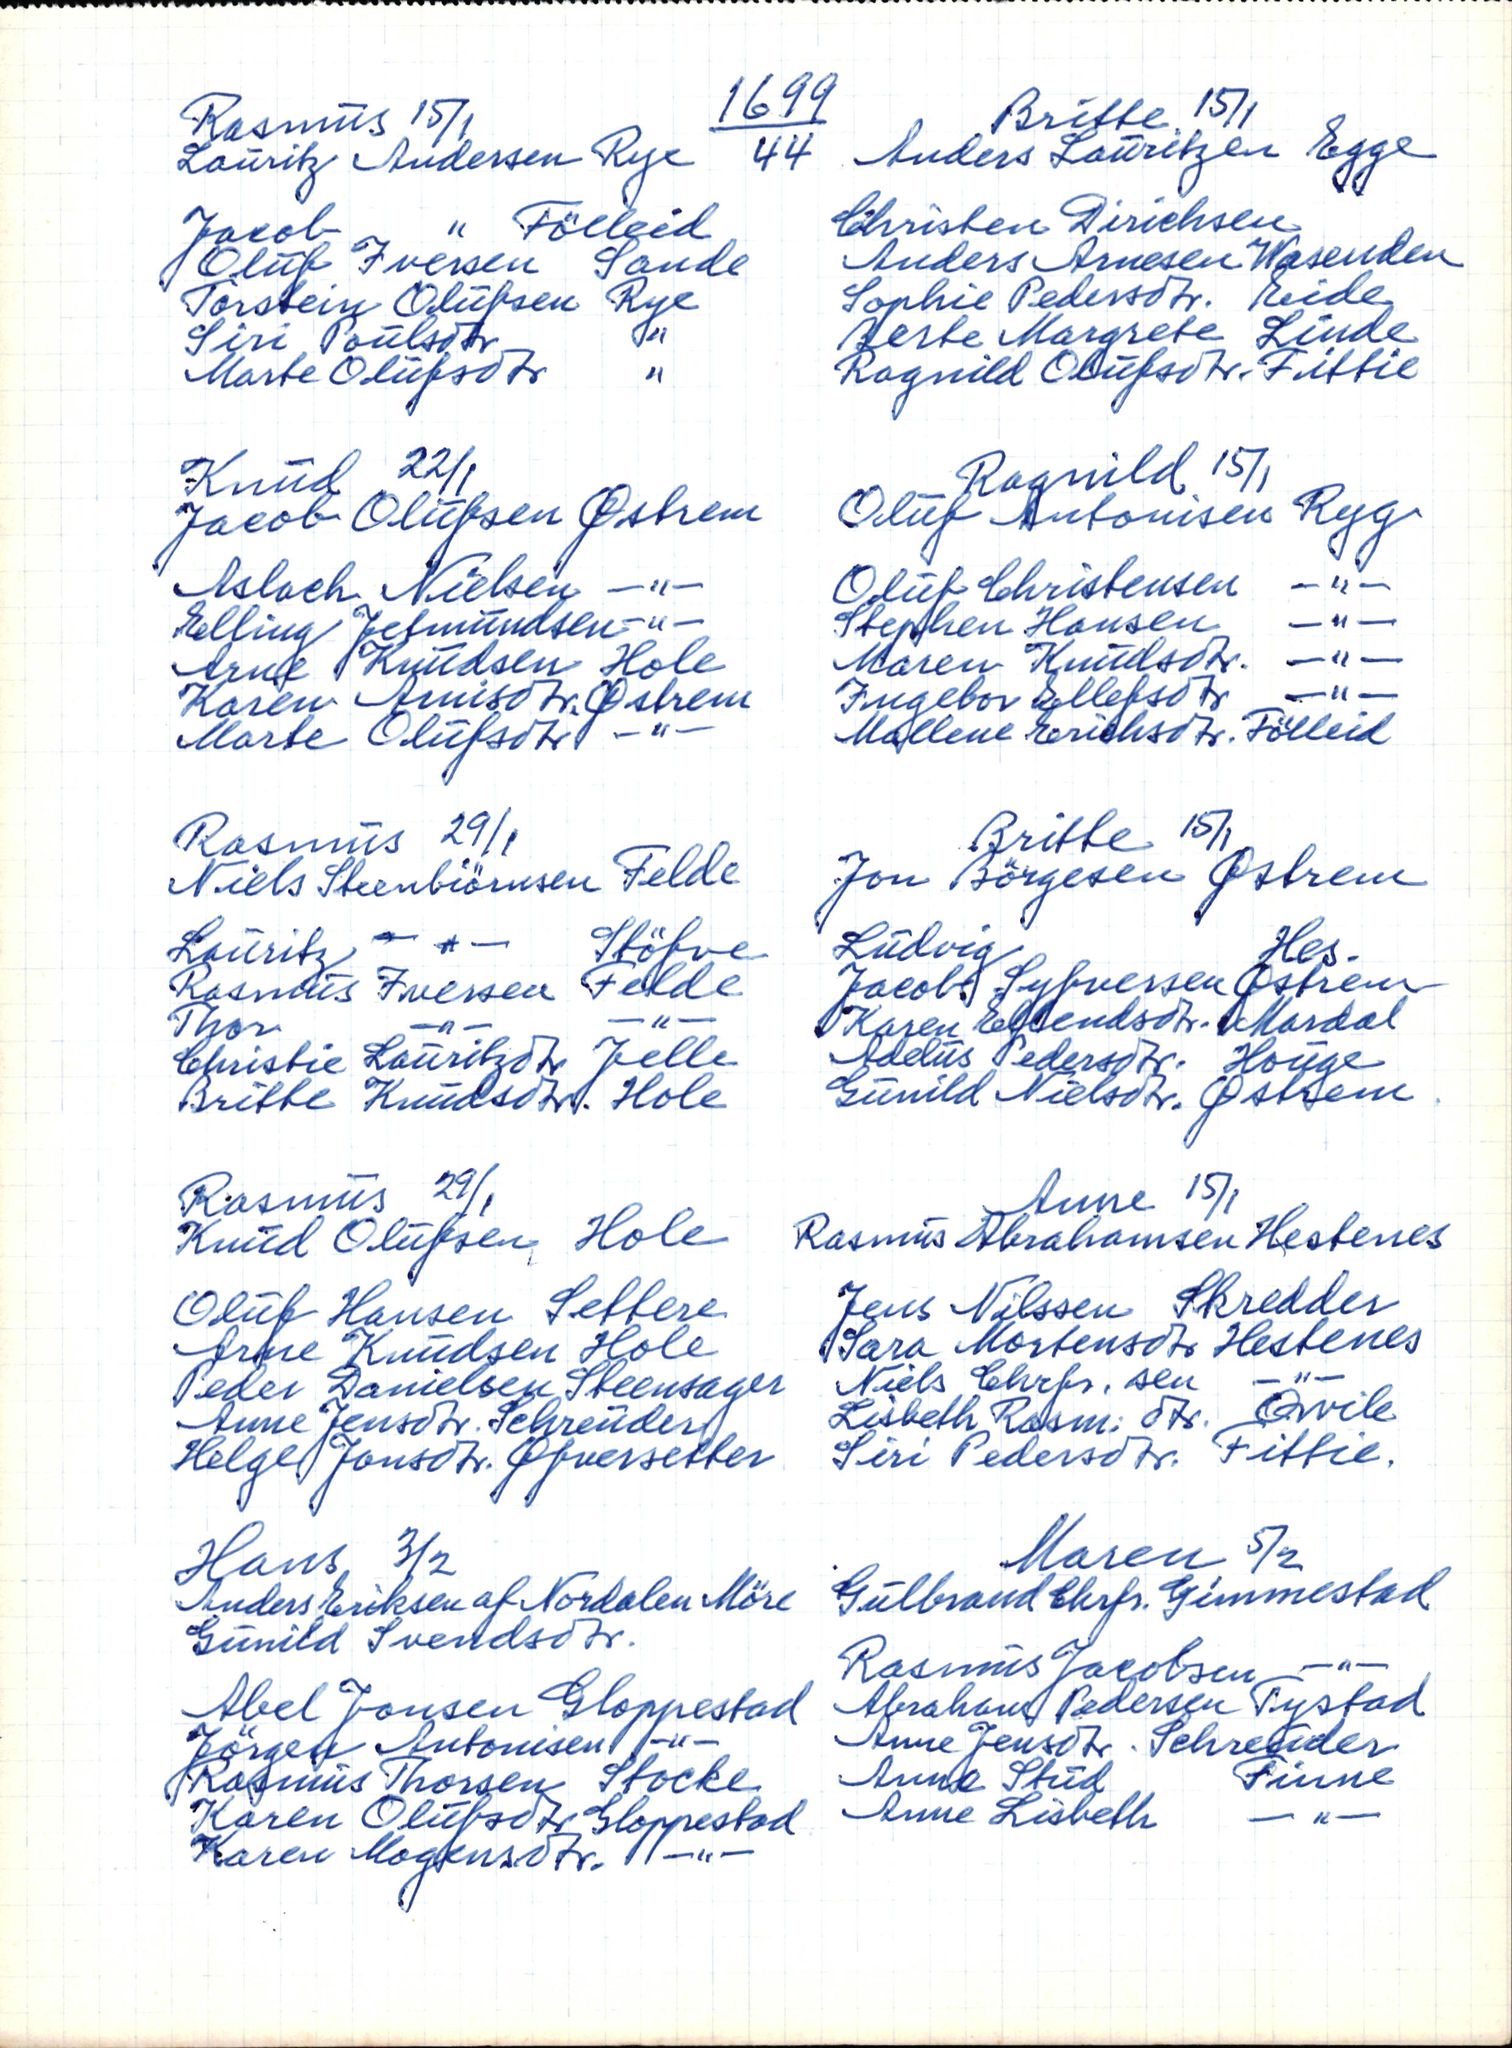 1699
44
Rasmus 15/1
Lauritz Andersen Rye
Jacob " Fölleid
Oluf Iversen Sande
Torstein Olufsen Rye
Siri Poulsdtr "
Marte Olufsdtr "
Knud 22/1
Jacob Olufsen Østrem
Aslach Nielsen —"—
Elling Jetmundsen —"—
Arne Knudsen Hole
Karen Arnisdtr. Østrem
Marte Olufsdtr —"—
Rasmus 29/1
Niels Steenbiörnsen Felde
Lauritz —"— Stöfve
Rasmus Iversen Felde
Thor —"— —"—
Christie Lauritzdtr Jelle
Britte Knudsdtr. Hole
Rasmus 29/1
Knud Olufsen Hole
Oluf Hansen Settere
Arne Knudsen Hole
Peder Danielsen Steensager
Anne Jensdtr. Schreuder
Helge Jonsdtr. Øfversetter
Hans 3/2
Anders Eriksen af Nordalen Möre
Gunild Svendsdtr.
Abel Jonsen Gloppestad
Jörgen Antonisen —"—
Rasmus Thorsen Stocke
Karen Olufsdtr Gloppestad
Karen Mogensdtr. —"—
Britte 15/1
Anders Lauritzen Egge
Christen Dirichsen
Anders Arnesen Wasenden
Sophie Pedersdtr. Eide
Berte Margrete Linde
Ragnild Olufsdtr. Fittie
Ragnild 15/1
Oluf Antonisen Ryg
Oluf Christensen —"—
Stephen Hansen —"—
Maren Knudsdtr. —"—
Ingebor Ellefsdtr —"—
Mallene Erichsdtr. Fölleid
Britte 15/1
Jon Börgesen Østrem
Ludvig Hes.
Jacob Syfversen Østrem
Karen Ellendsdtr. Mardal
Adelus Pedersdtr. Houge
Gunild Nielsdtr. Østrem
Anne 15/1
Rasmus Abrahamsen Hestenes
Jens Nilssen Skredder
Sara Mortensdtr Hestenes
Niels Chrfr. sen —"—
Lisbeth Rasm: dtr. Qvile
Siri Pedersdtr. Fittie.
Maren 5/2
Gulbrand Chrfr. Gimmestad
Rasmus Jacobsen —"—
Abraham Pedersen Tystad
Anne Jensdtr. Schreuder
Anne Stud Finne
Anne Lisbeth —"—